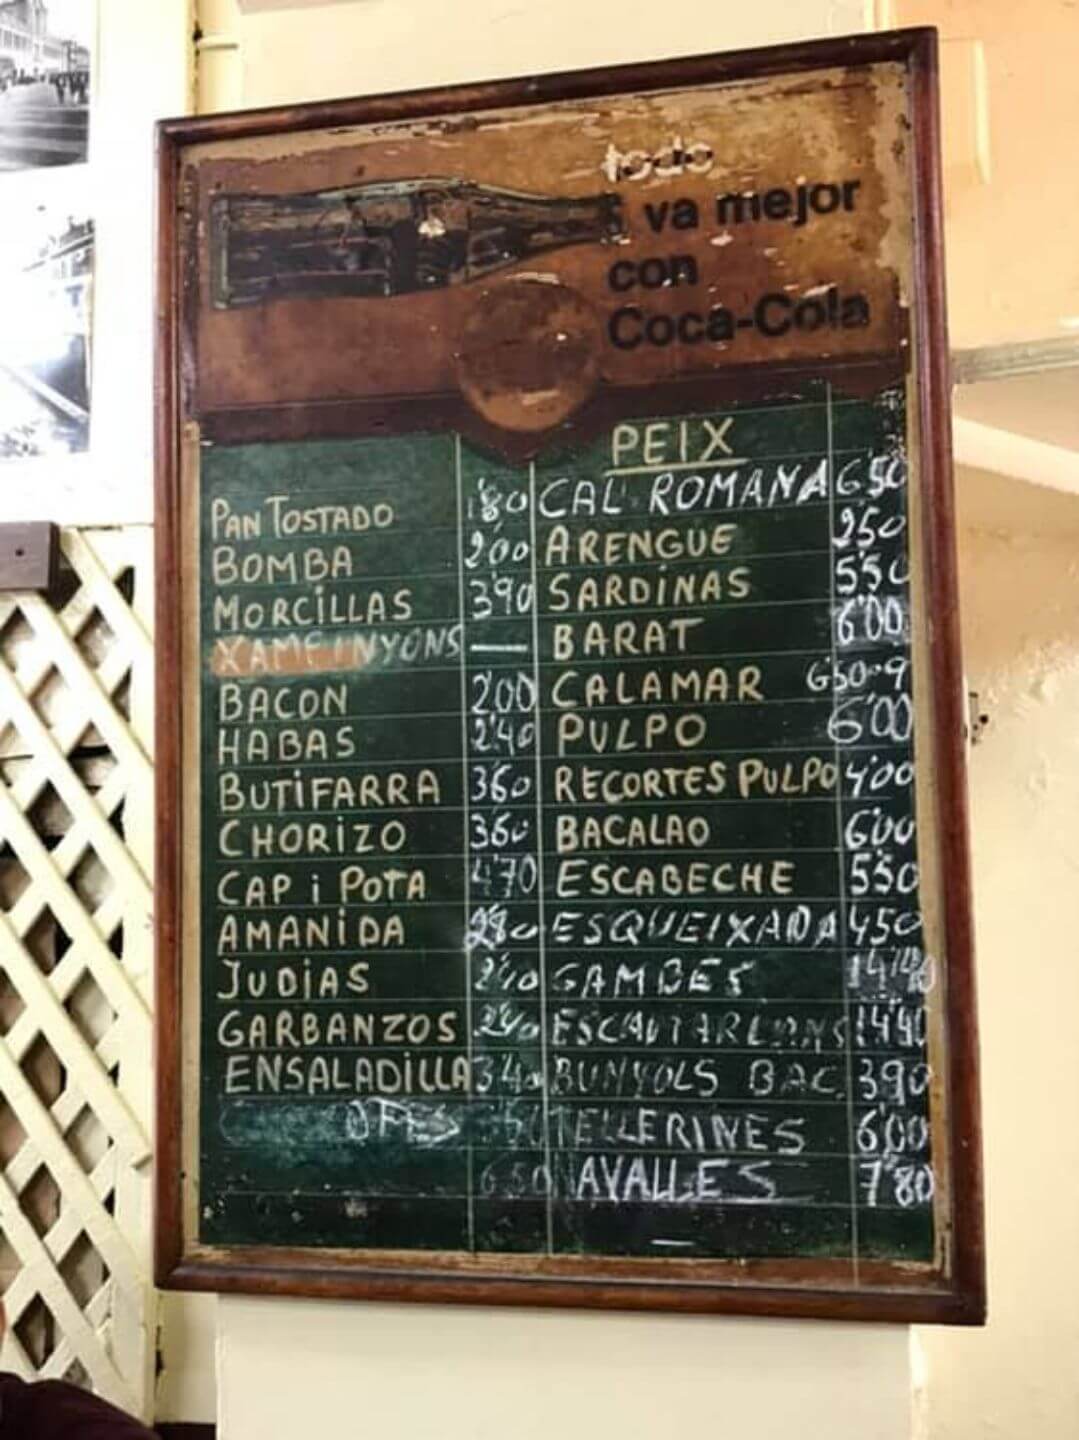 todo
va mejor
con
Coca-Cola
PAN TOSTADO 1'80
BOMBA 2'00
MORCILLAS 3'90
XAMPINYONS —
BACON 2'00
HABAS 2'40
BUTIFARRA 3'60
CHORIZO 3'60
CAP i POTA 4'70
AMANIDA 2'80
JUDIAS 2'40
GARBANZOS 2'40
ENSALADILLA 3'40
6'50
PEIX
CAL ROMANA 6'50
ARENGUE 2'50
SARDINAS 5'50
BARAT 6'00
CALAMAR 6'50-9
PULPO 6'00
RECORTES PULPO 4'00
BACALAO 6'00
ESCABECHE 5'50
ESQUEIXADA 4'50
GAMBES 14'40
14'40
BUNYOLS BAC. 3'90
TELLERINES 6'00
NAVALLES 7'80